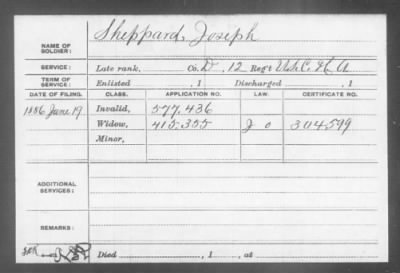 NAME OF SOLDIER: Sheppard, Joseph
SERVICE: Late rank, Co. D, 12 Reg't U.S.C. H A
TERM OF SERVICE: Enlisted , 1 Discharged , 1
DATE OF FILING. CLASS. APPLICATION NO. LAW. CERTIFICATE NO.
1886 June 19 Invalid, 577.436
Widow, 415.355 J o 304599
Minor,
ADDITIONAL SERVICES:
REMARKS:
Died , 1 , at